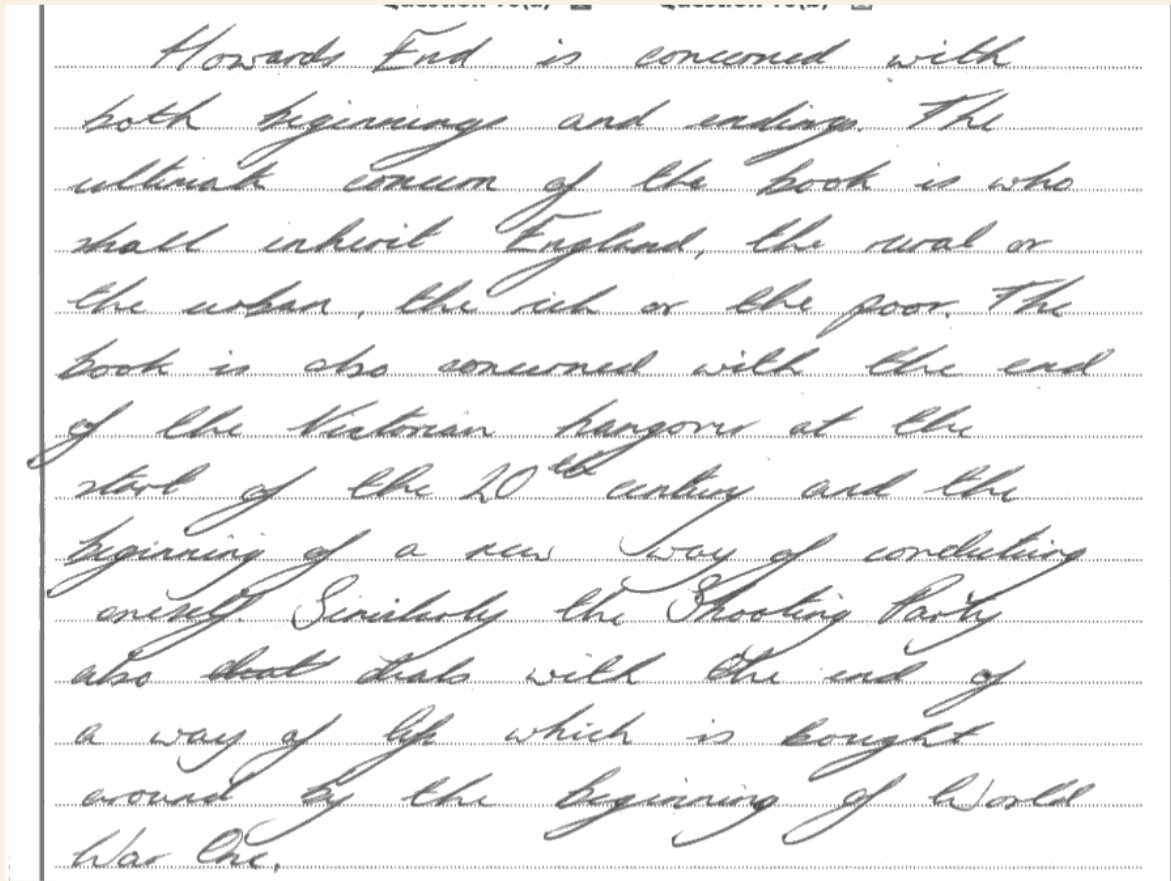 Howards End is concerned with
both beginnings and endings. The
ultimate concern of the book is who
shall inherit England, the rural or
the urban, the rich or the poor. The
book is also concerned with the end
of the Victorian hangover at the
start of the 20th century and the
beginning of a new way of conducting
oneself. Similarly the Shooting Party
also deals with the end of
a way of life which is bought
around by the beginning of World
War One.